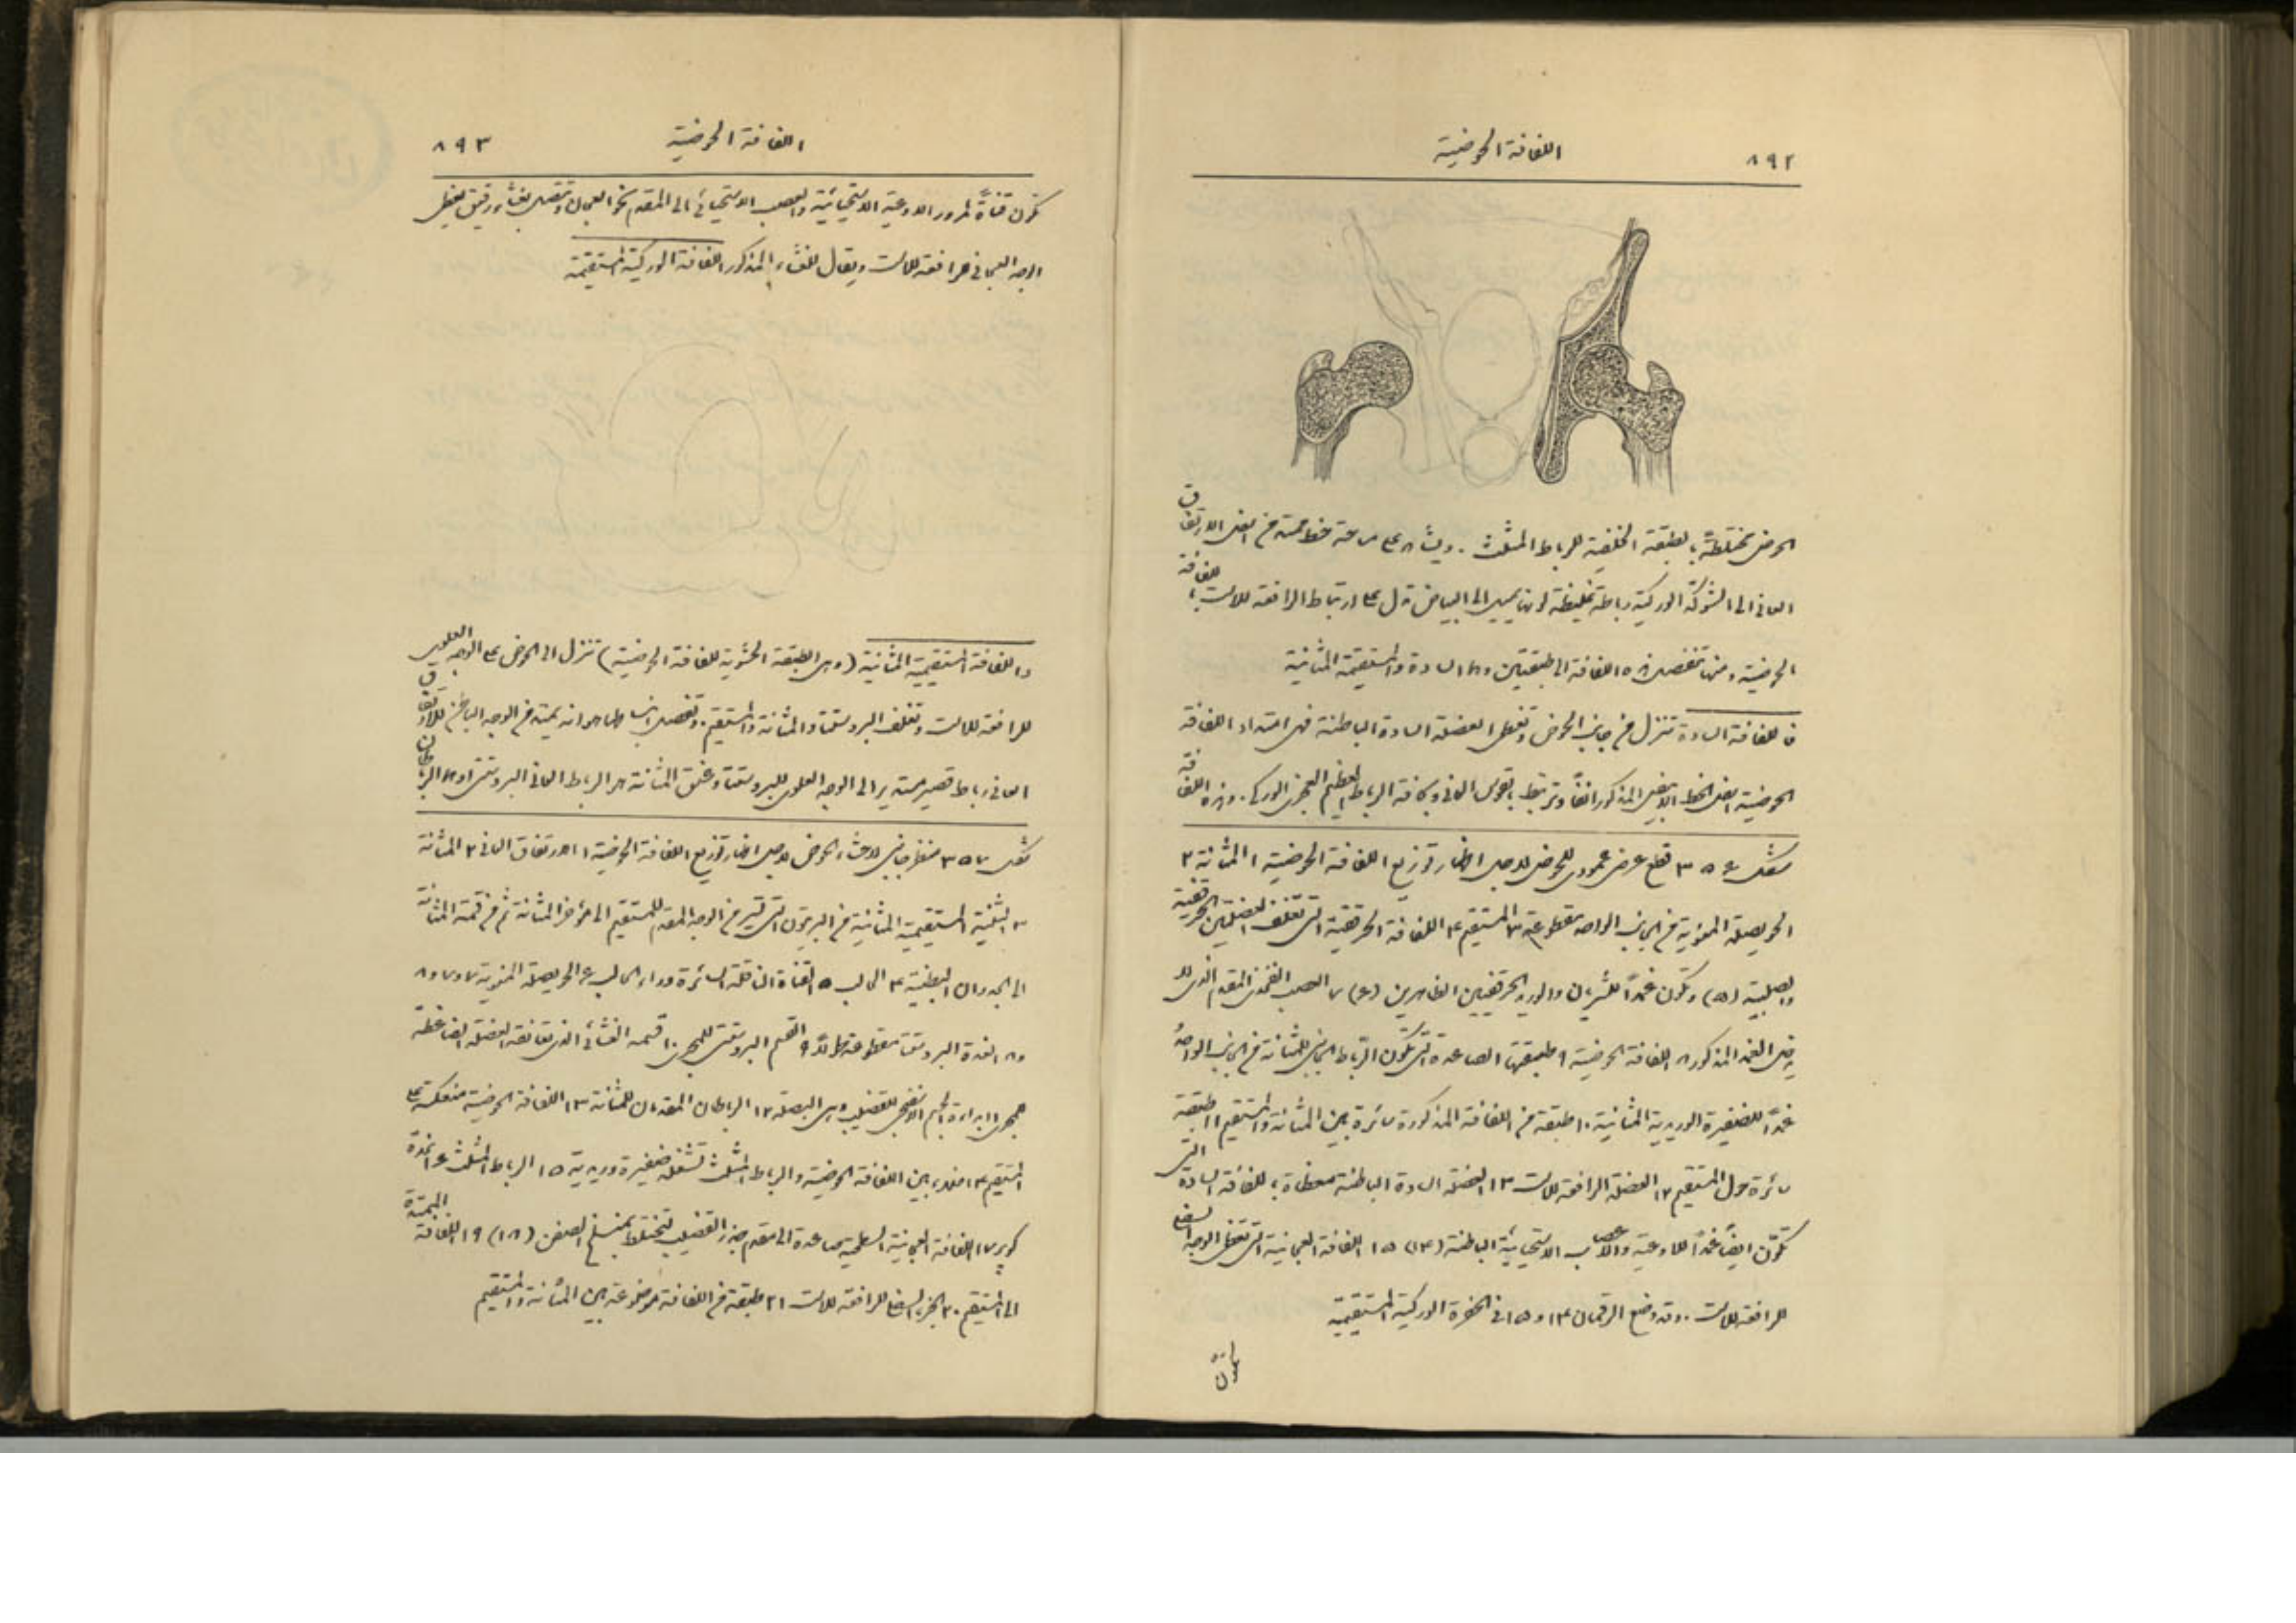 ٨٩٢
اللفافة الحوضية
الحوض مختلطة بالطبقة الخلفية للرباط المثلث . ويشاهد على مساحة خط ممتد من اسفل الارتفاق
العاني الى الشوكة الوركية رباطة غليظة لونها يميل الى البياض تدل على ارتباط الرافعة للاست باللفافة
الحوضية ومنها تنفصل هذه اللفافة الى طبقتين وهما السادة والمستقيمية المثانية
فاللفافة السادة تنزل من جانب الحوض وتغطي العضلة السادة الباطنة فهي امتداد اللفافة
الحوضية اسفل الخط الابيض المذكور انفًا وترتبط بقوس العاني وبحافة الرباط العظيم العجزي الوركي . وهذه اللفافة
شكل ٣٥٤ قطع عرضي عمودي للحوض لاجل اظهار توزيع اللفافة الحوضية ١ المثانة ٢
الحويصلة المنوية من الجانب الواحد مقطوعة ٣ المستقيم ٤ اللفافة الحرقفية التي تغلف العضلتين الحرقفية
والصلبية (٥) وتكون غمدًا للشريان والوريد الحرقفيين الظاهرين (٦) ٧ العصب الفخذي المقدم الذي لا
يدخل الغمد المذكور ٨ اللفافة الحوضية ٩ طبقتها الصاعدة التي تكون الرباط الجانبي للمثانة من الجانب الواحد
غمدًا للضفيرة الوريدية المثانية ١٠ طبقة من اللفافة المذكورة سائرة بين المثانة والمستقيم ١١ طبقة
سائرة حول المستقيم ١٢ العضلة الرافعة للاست ١٣ العضلة السادة الباطنة مغطاة باللفافة السادة التي
تكوّن ايضًا غمدًا للاوعية والاعصاب الاستحيائية الباطنة (١٤) ١٥ اللفافة العجانية التي تغطي الوجه السفلي
للرافعة للاست . وقد وضع الرقمان ١٤ و١٥ في الحفرة الوركية المستقيمية
تكوّن
٨٩٣
اللفافة الحوضية
تكون قناةً لمرور الاوعية الاستحيائية والعصب الاستحيائي الى المقدم نحو العجان وتتصل بغشاء رقيق يغطي
الوجه العجاني من الرافعة للاست ويقال للغشاء المذكور اللفافة الوركية المستقيمية
واللفافة المستقيمية المثانية (وهي الطبقة الحشوية للفافة الحوضية) تنزل الى الحوض على الوجه العلوي
للرافعة للاست وتغلف البروستتا والمثانة والمستقيم. وتتصل من الوجه الباطن للارتفاق
العاني رباط قصير مستدير الى الوجه العلوي للبروستتا وعنق المثانة هو الرباط العاني البروستتي او هما الرباطان
شكل ٣٥٧ منظر جانبي لاحشاء الحوض لاجل اظهار توزيع اللفافة الحوضية ١ الارتفاق العاني ٢ المثانة
٣ الثنية المستقيمية المثانية من البريتون التي تسير من الوجه المقدم للمستقيم الى مؤخر المثانة ثم من قمة المثانة
الى الجدران البطنية ٤ الحالب ٥ القناة الناقلة السائرة وراء الحالب ٦ الحويصلة المنوية ٧ و٧ و٨
و٨ الغدة البروستتا مقطوعة طولاً ٩ القسم البروستتي للمجرى ١٠ قسمه الغشائي الذي تعانقه العضلة الضاغطة
للمجرى ١١ ابتداء الجسم الاسفنجي للقضيب وهي البصلة ١٢ الرباطان المقدمان للمثانة ١٣ اللفافة الحوضية منعكسة على
المستقيم ١٤ فضاء بين اللفافة الحوضية والرباط المثلث تشغله ضفيرة وريدية ١٥ الرباط المثلث ١٦ غدة
كوبر ١٧ اللفافة العجانية السطحية صاعدة الى مقدم جذر القضيب لتختلط بمنسلخ الصفن (١٨) ١٩ اللفافة الممتدة
الى المستقيم ٢٠ الجزء السفلي للرافعة للاست ٢١ طبقة من اللفافة موضوعة بين المثانة والمستقيم